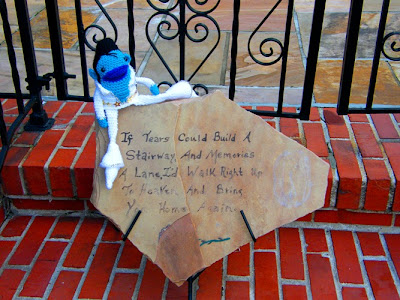 If Tears Could Build A
Stairway, And Memories
A Lane, I'd Walk Right Up
To Heaven, And Bring
You Home Again.